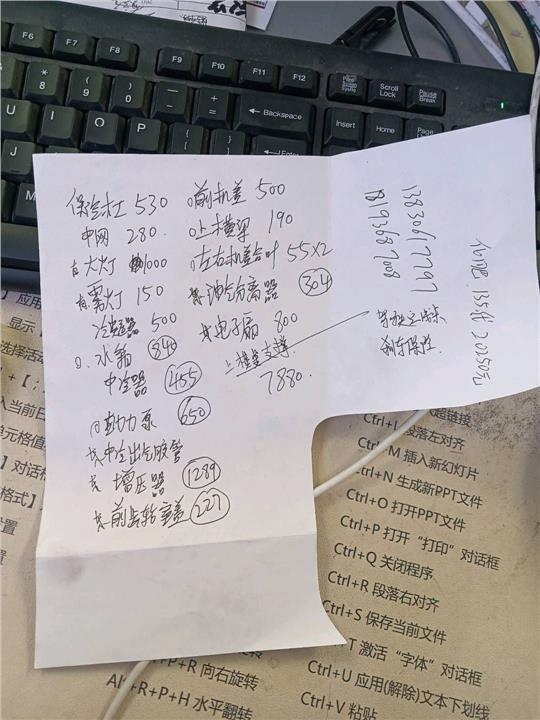 F6
F7
F8
F9
F10
F11
F12
Scroll
Lock
Pause
Break
*
8
(
9
)
0
Backspace
Insert
Home
Page
U
I
O
P
Enter
J
K
L
M
保险杠 530
中网 280.
大灯 1000
雾灯 150
冷凝器 500
水箱 840
中冷器 455
助力泵 650
中冷出气胶管
增压器 1289
前齿轮室盖 227
前机盖 500
上横梁 190
左右机盖合叶 55X2
油气分离器 304
电子扇 800
上横梁支撑
7880.
13830617797
18193687008
刹车保险.
20250元
】应用
显示
选择活动
入当前日
单元格值
】对话框
格式】
设置
置
超链接
Ctrl+L 段落左对齐
Ctrl+M 插入新幻灯片
Ctrl+N 生成新PPT文件
Ctrl+O 打开PPT文件
Ctrl+P 打开“打印”对话框
Ctrl+Q 关闭程序
Ctrl+R 段落右对齐
Ctrl+S 保存当前文件
+T 激活“字体”对话框
Ctrl+U 应用(解除)文本下划线
Ctrl+V 粘贴
+P+R 向右旋转
+R+P+H 水平翻转